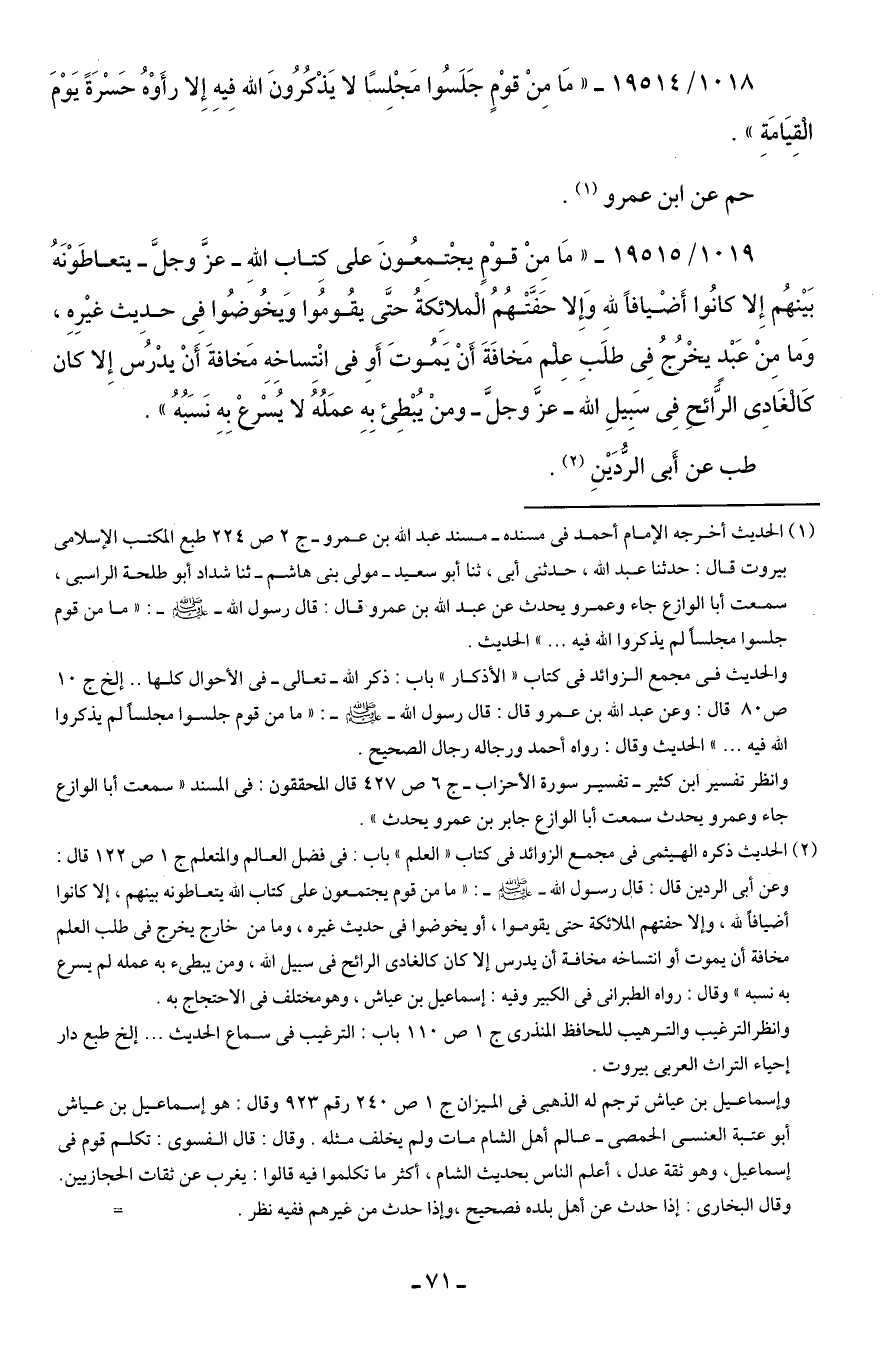 ١٠١٨/ ١٩٥١٤ ـ « مَا مِنْ قوْمٍ جَلَسُوا مَجْلِسًا لا يَذْكُرُونَ الله فِيهِ إلا رأَوْهُ حَسْرَةً يَوْمَ
الْقِيَامَةِ » .
حم عن ابن عمرو (١) .
١٠١٩/ ١٩٥١٥ ـ « مَا مِنْ قـوْمٍ يجْتـمعُـونَ على كِتـاب اللهِ ـ عزَّ وجلَّ ـ يتعـاطَوْنَهُ
بَيْنهُم إلا كانُوا أضْـيافاً للهِ وَإلا حَفَّتْـهُمُ الْملائكةُ حتَّى يقُـومُوا وَيَخُوضُوا فى حـديث غيْرِه ،
وَما مِنْ عَبْدٍ يخْرُجُ فى طلَبِ عِلْم مَخافَةَ أنْ يَمُوتَ أو فى انْتساخه مَخافةَ أنْ يدْرُس إلا كان
كَالْغادِى الرَّائحِ فى سَبِيلِ الله ـ عزَّ وجلَّ ـ ومنْ يُبْطِئ بِهِ عملُهُ لا يُسْرعْ بِهِ نَسَبُهُ » .
طب عن أَبى الرُّدَيْنِ (٢) .
(١) الحديث أخـرجه الإمـام أحمـد فى مسنده ـ مـسند عبد الله بن عـمرو ـ ج ٢ ص ٢٢٤ طبع المكتـب الإسلامى
بيروت قـال : حدثنا عـبد الله ، حـدثنى أبى ، ثنا أبو سعيـد ـ مولى بنى هاشـم ـ ثنا شداد أبو طلحـة الراسبى ،
سمـعت أبا الوازع جاء وعمـرو يحدث عن عبـد الله بن عمرو قـال : قال رسول الله ـ ﷺ ـ : « مـا من قوم
جلسوا مجلساً لم يذكروا الله فيه ... » الحديث .
والحديث فـى مجمع الـزوائد فى كتاب « الأذكـار » باب : ذكر الله ـ تعـالى ـ فى الأحوال كلـها .. إلخ ج ١٠
ص ٨٠ قال : وعن عبد الله بن عـمرو قال : قال رسول الله ـ ﷺ ـ : « ما من قوم جلسـوا مجلسـاً لم يذكروا
الله فيه ... » الحديث وقال : رواه أحمد ورجاله رجال الصحيح .
وانظر تفسير ابن كثير ـ تفسيـر سورة الأحزاب ـ ج ٦ ص ٤٢٧ قال المحققون : فى المسند « سمعت أبا الوازع
جاء وعمرو يحدث سمعت أبا الوازع جابر بن عمرو يحدث » .
(٢) الحديث ذكره الهيثمى فى مجمع الزوائد فى كتاب « العلم » باب : فى فضل العالم والمتعلم ج ١ ص ١٢٢ قال :
وعن أبى الردين قال : قال رسـول الله ـ ﷺ ـ : « ما من قوم يجتمـعون على كتاب الله يتعـاطونه بينهم ، إلا كانوا
أضيافاً لله ، وإلا حفتهم الملائكة حتى يقومـوا ، أو يخوضوا فى حديث غيره ، وما من خارج يخرج فى طلب العلم
مخافة أن يموت أو انتساخه مخافـة أن يدرس إلا كان كالغادى الرائح فى سبيل الله ، ومن يبطىء به عمله لم يسرع
به نسبه » وقال : رواه الطبرانى فى الكبير وفيه : إسماعيل بن عياش ، وهو مختلف فى الاحتجاج به .
وانظر الترغيب والتـرهيب للحافظ المنذرى ج ١ ص ١١٠ باب : الترغيب فى سـماع الحديث ... إلخ طبع دار
إحياء التراث العربى بيروت .
وإسماعـيل بن عياش ترجم له الذهبى فى المـيزان ج ١ ص ٢٤٠ رقم ٩٢٣ وقال : هو إسـماعـيل بن عـياش
أبو عتبـة العنسـى الحمـصى ـ عـالم أهل الشام مـات ولم يخلف مـثله . وقال : قال الـفسوى : تكلـم قوم فى
إسماعيل، وهو ثقة عدل ، أعلم الناس بحديث الشام ، أكثر ما تكلموا فيه قالوا : يغرب عن ثقات الحجازيين.
وقال البخارى : إذا حدث عن أهل بلده فصحيح ، وإذا حدث من غيرهم ففيه نظر . =
ـ ٧١ ـ